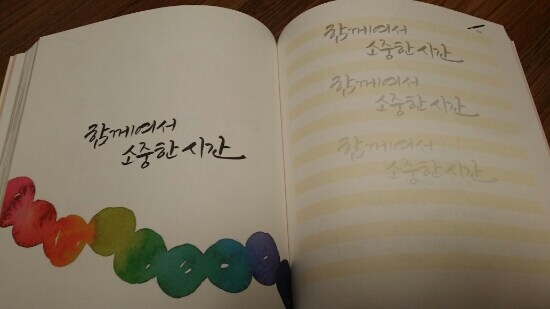 함께여서
소중한 시간
함께여서
소중한 시간
함께여서
소중한 시간
함께여서
소중한 시간